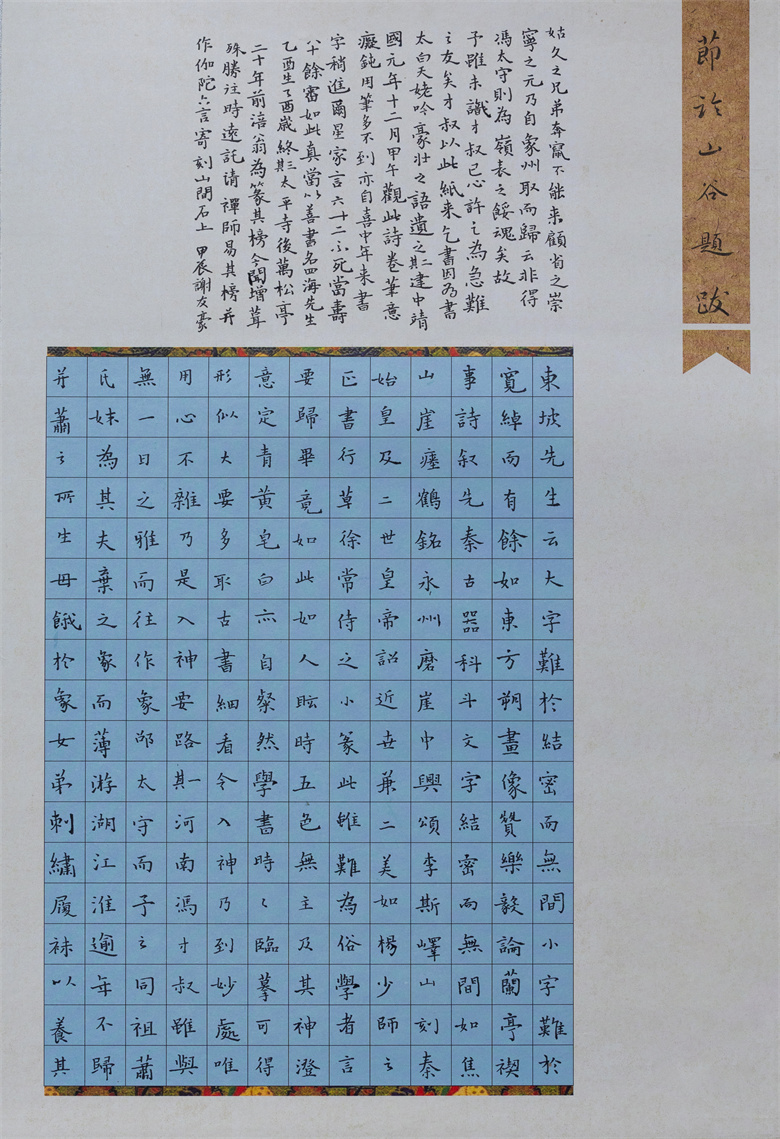 節於山谷題跋
東坡先生云大字難於結密而無間小字難於
寬綽而有餘如東方朔畫像贊樂毅論蘭亭禊
事詩叙先秦古器科斗文字結密而無間如焦
山崖瘞鶴銘永州磨崖中興頌李斯嶧山刻秦
始皇及二世皇帝詔近世兼二美如楊少師之
正書行草徐常侍之小篆此雖難為俗學者言
要歸畢竟如此如人眩時五色無主及其神澄
意定青黃皂白亦自粲然學書時〻臨摹可得
形似大要多取古書細看令入神乃到妙處唯
用心不雜乃是入神要路其一河南馮才叔雖與
無一日之雅而往作象邵太守而予之同祖蕭
氏妹為其夫棄之象而薄游湖江淮逾年不歸
并蕭之所生母餓於象女弟刺繡履袜以養其
姑久之兄弟奔竄不能來顧省之崇
寧之元乃自象州取而歸云非得
馮太守則為嶺表之餒魂矣故
予雖未識才叔已心許之為急難
之友矣才叔以此紙來乞書因為書
太白天姥吟豪壯之語遺之其二建中靖
國元年十二月甲午觀此詩卷筆意
癡鈍用筆多不到亦自喜中年來書
字稍進爾星家言六十二不死當壽
八十餘審如此真當以善書名四海先生
乙酉生乙酉歲終其三太平寺後萬松亭
二十年前涪翁為篆其榜今聞增葺
殊勝往時遠託請禪師易其榜并
作伽陀六言寄刻山間石上 甲辰謝友豪